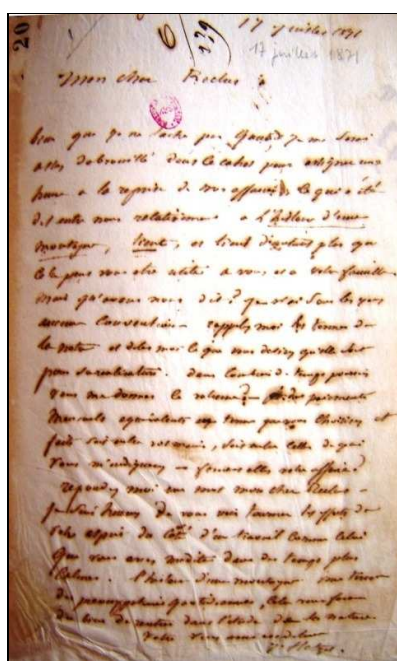 20
6
239
17 juillet 1871
17 juillet 1871
Mon cher Reclus
bien que je ne sache pas quand je me serai
assez débrouillé dans le cahos pour assigner une
heure à la reprise de nos affaires, ce qui a été
dit entre nous relativement à l'histoire d'une
montagne, tient, et tient d'autant plus que
cela peut vous être utile à vous et à votre famille
mais qu'avons nous dit? Je n'ai sous les yeux
aucune convention rappelez moi les termes de
la notre et dites moi ce que vous désirez qu'elle soit
pour sa réalisation. Dans combien de temps pourriez
vous me donner le volume? des paiements
mensuels équivalents au temps
soit entre vos mains, soit entre celle de qui
vous m'indiquerez feraient elle votre affaire?
répondez moi un mot mon cher Reclus
je serai heureux de vous voir tourner les efforts de
votre esprit du côté d'un travail comme celui
que vous avez médité dans des temps plus
calmes. l'histoire d'une montagne
quotidiennes, cela vous fera
du bien de rentrer dans l'étude de la nature.
Votre
J. Hetzel.